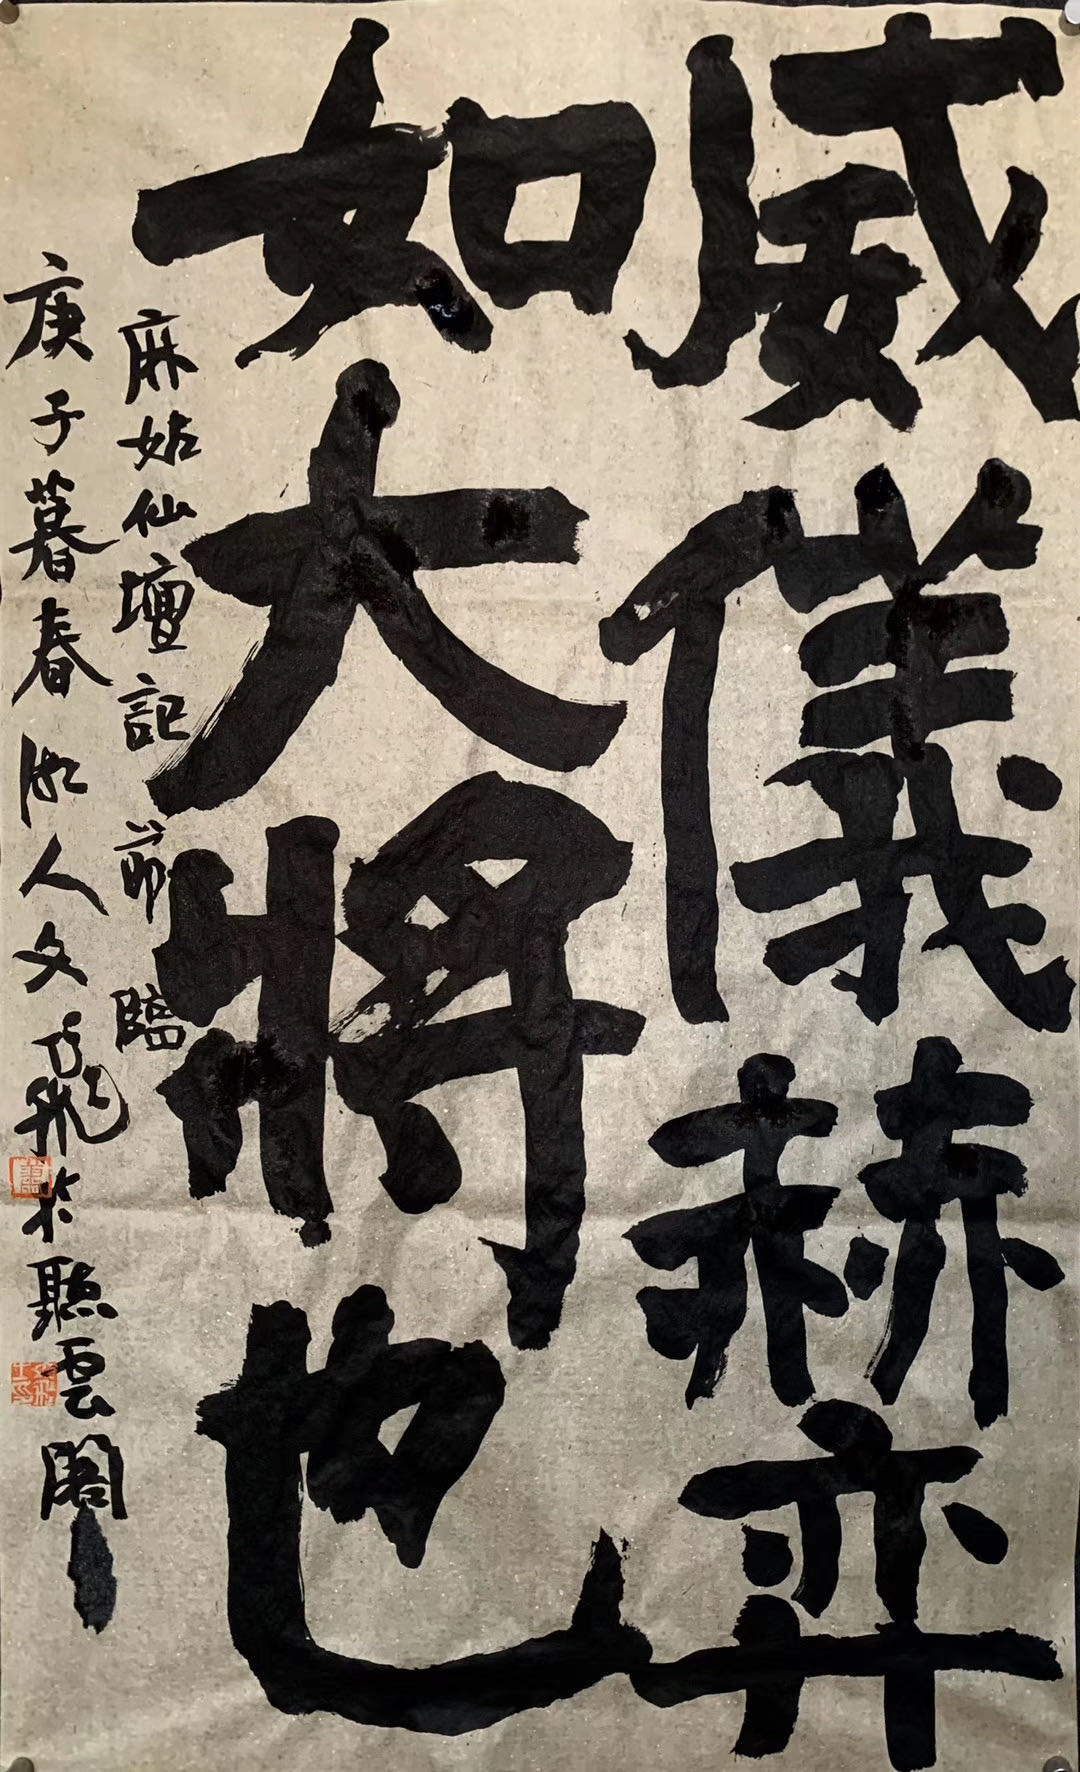 威儀赫弈
如大將也
麻姑仙壇記 節臨
庚子暮春 湘人文飛於聽雲閣